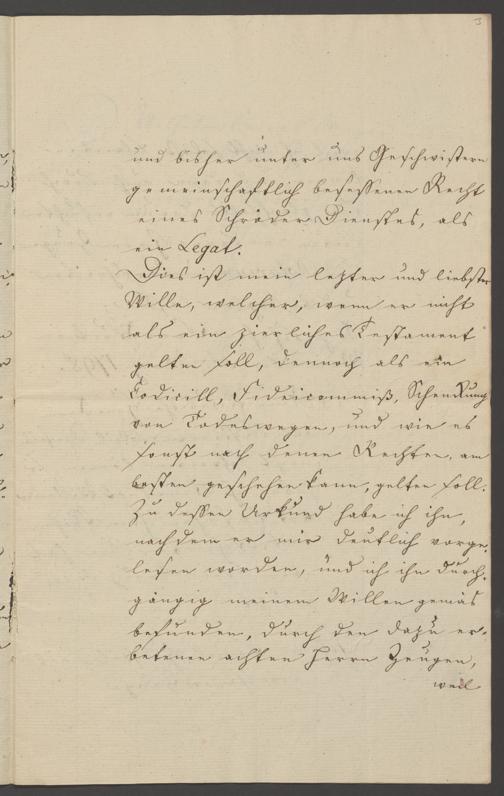 3
und bisher unter uns Geschwistern
gemeinschaftlich besessenen Recht
eines Schröder Dienstes, als
ein Legat.
Dies ist mein letzter und liebster
Wille, welcher, wenn er nicht
als ein zierliches Testament
gelten soll, dennoch als ein
Codicill, Fideicommiß, Schenkung
von Todeswegen, und wie es
sonst nach denen Rechten, am
besten, geschehen kann, gelten soll.
Zu dessen Urkund habe ich ihn,
nachdem er mir deutlich vorge-
lesen worden, und ich ihn durch-
gängig meinem Willen gemäs
befunden, durch den dazu er-
betenen achten Herrn Zeugen,
weil